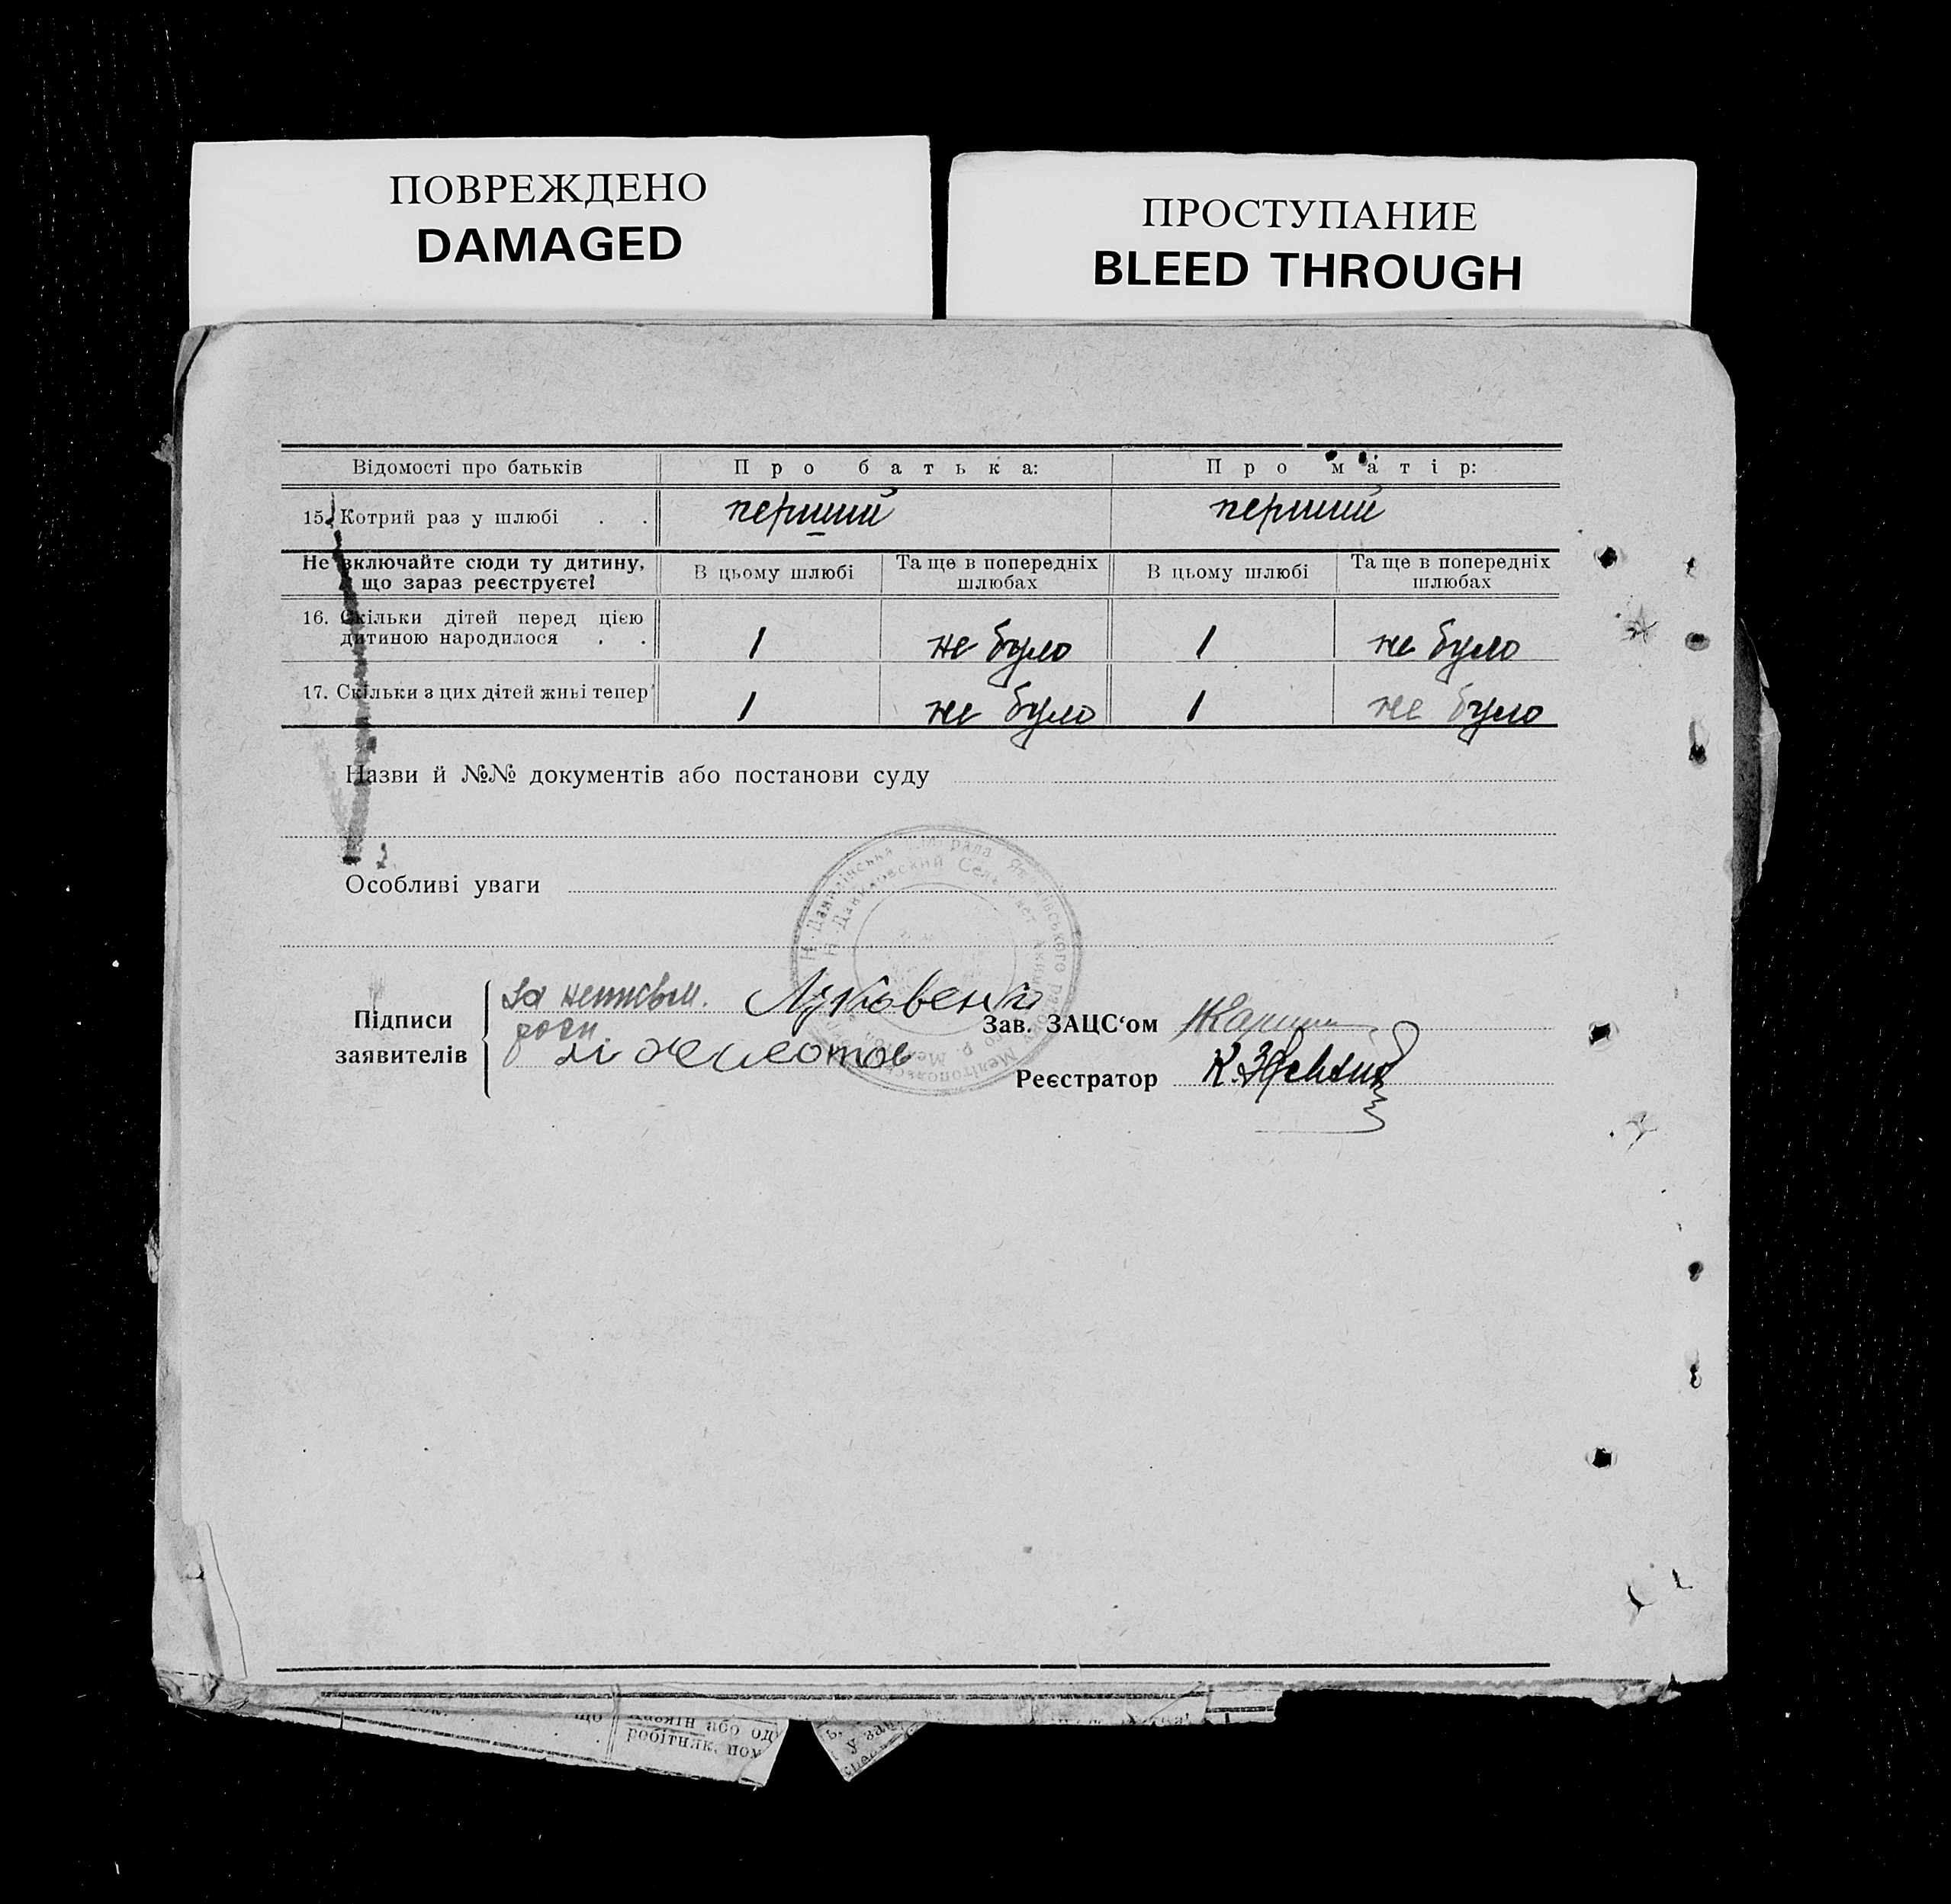 ПОВРЕЖДЕНО
DAMAGED
ПРОСТУПАНИЕ
BLEED THROUGH
Відомості про батьків Про батька: Про матір:
15. Котрий раз у шлюбі . . перший перший
Не включайте сюди ту дитину, що зараз реєструєте! В цьому шлюбі Та ще в попередніх шлюбах В цьому шлюбі Та ще в попередніх шлюбах
16. Скільки дітей перед цією
дитиною народилося . . 1 не було 1 не було
17. Скільки з цих дітей живі тепер 1 не було 1 не було
Назви й №№ документів або постанови суду
Особливі уваги
Підписи заявителів
за неписьм. Луковенка
роспи
Зав. ЗАЦС'ом
Реєстратор
що
або од
робітник, пом
у зав